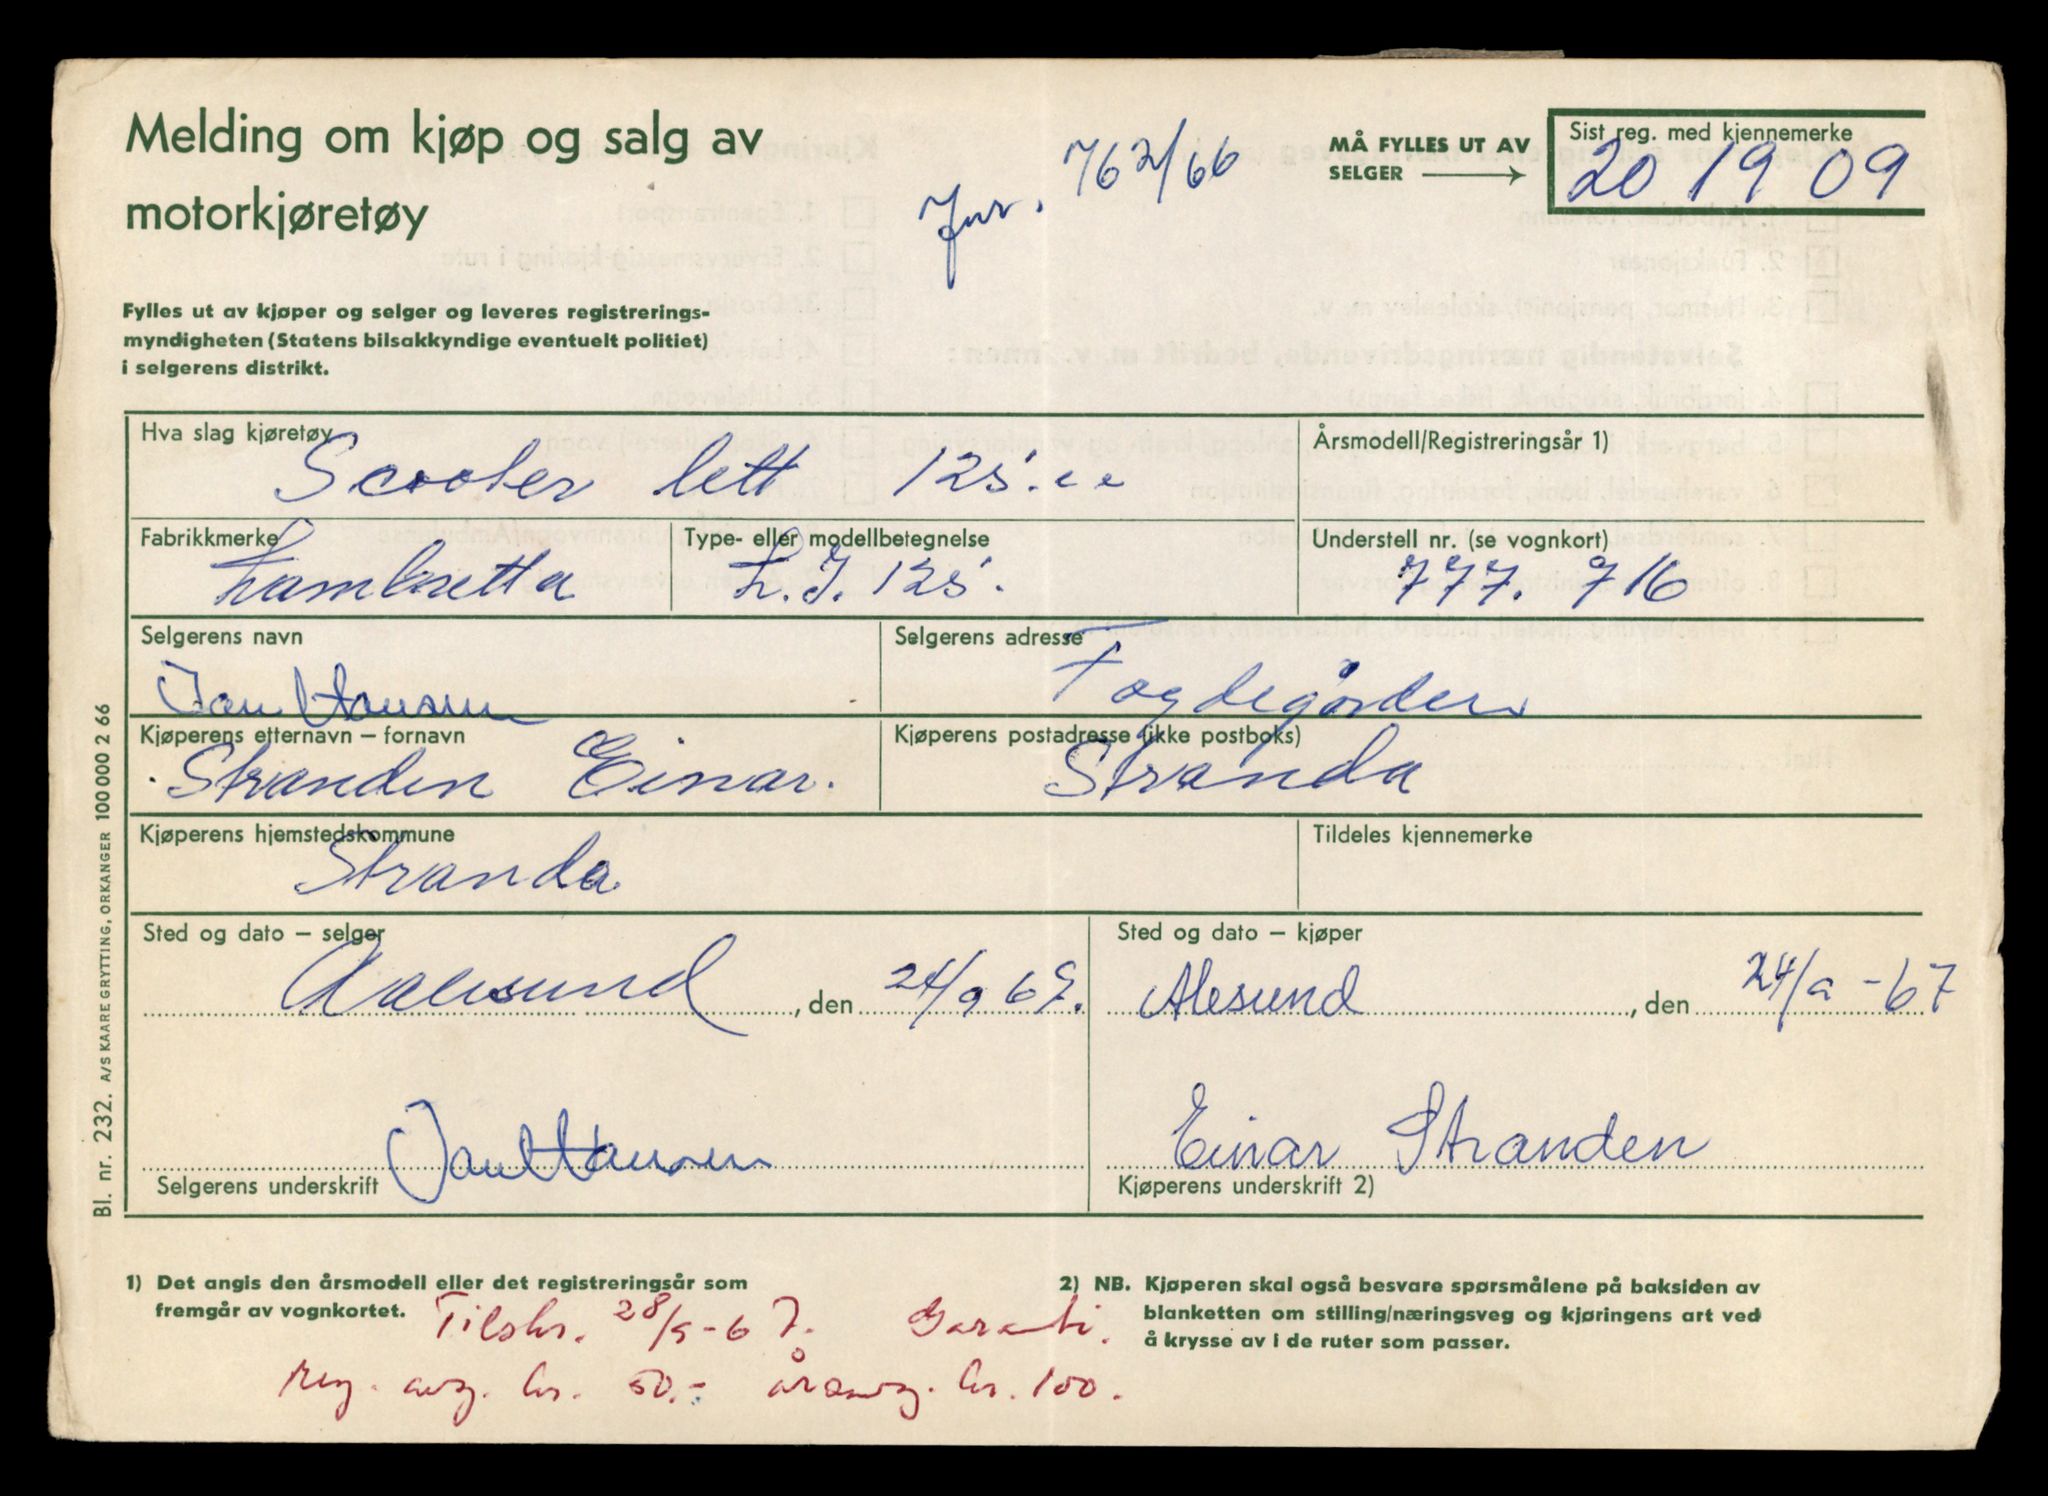 Melding om kjøp og salg av
motorkjøretøy
Jnr. 762/66
MÅ FYLLES UT AV
SELGER
Sist reg. med kjennemerke
20 19 09
Fylles ut av kjøper og selger og leveres registrerings-
myndigheten (Statens bilsakkyndige eventuelt politiet)
i selgerens distrikt.
Hva slag kjøretøy
Scooter lett 125 cc
Årsmodell/Registreringsår 1)
Fabrikkmerke
Lambretta
Type- eller modellbetegnelse
L.I. 125.
Understell nr. (se vognkort)
777.716
Selgerens navn
Jan Hansen
Selgerens adresse
Fogdegården
Kjøperens etternavn – fornavn
Stranden Einar.
Kjøperens postadresse (ikke postboks)
Stranda
Kjøperens hjemstedskommune
Stranda
Tildeles kjennemerke
Sted og dato – selger
Aalesund, den 24/9 67.
Sted og dato – kjøper
Alesund, den 24/9 -67
Jan Hansen
Selgerens underskrift
Einar Stranden
Kjøperens underskrift 2)
1) Det angis den årsmodell eller det registreringsår som
fremgår av vognkortet.
2) NB. Kjøperen skal også besvare spørsmålene på baksiden av
blanketten om stilling/næringsveg og kjøringens art ved
å krysse av i de ruter som passer.
Tilskr. 28/9-67. Garanti.
Reg. avg. kr. 50.- årsavg. kr. 100.
Bl. nr. 232. A/S KAARE GRYTTING, ORKANGER 100 000 2 66